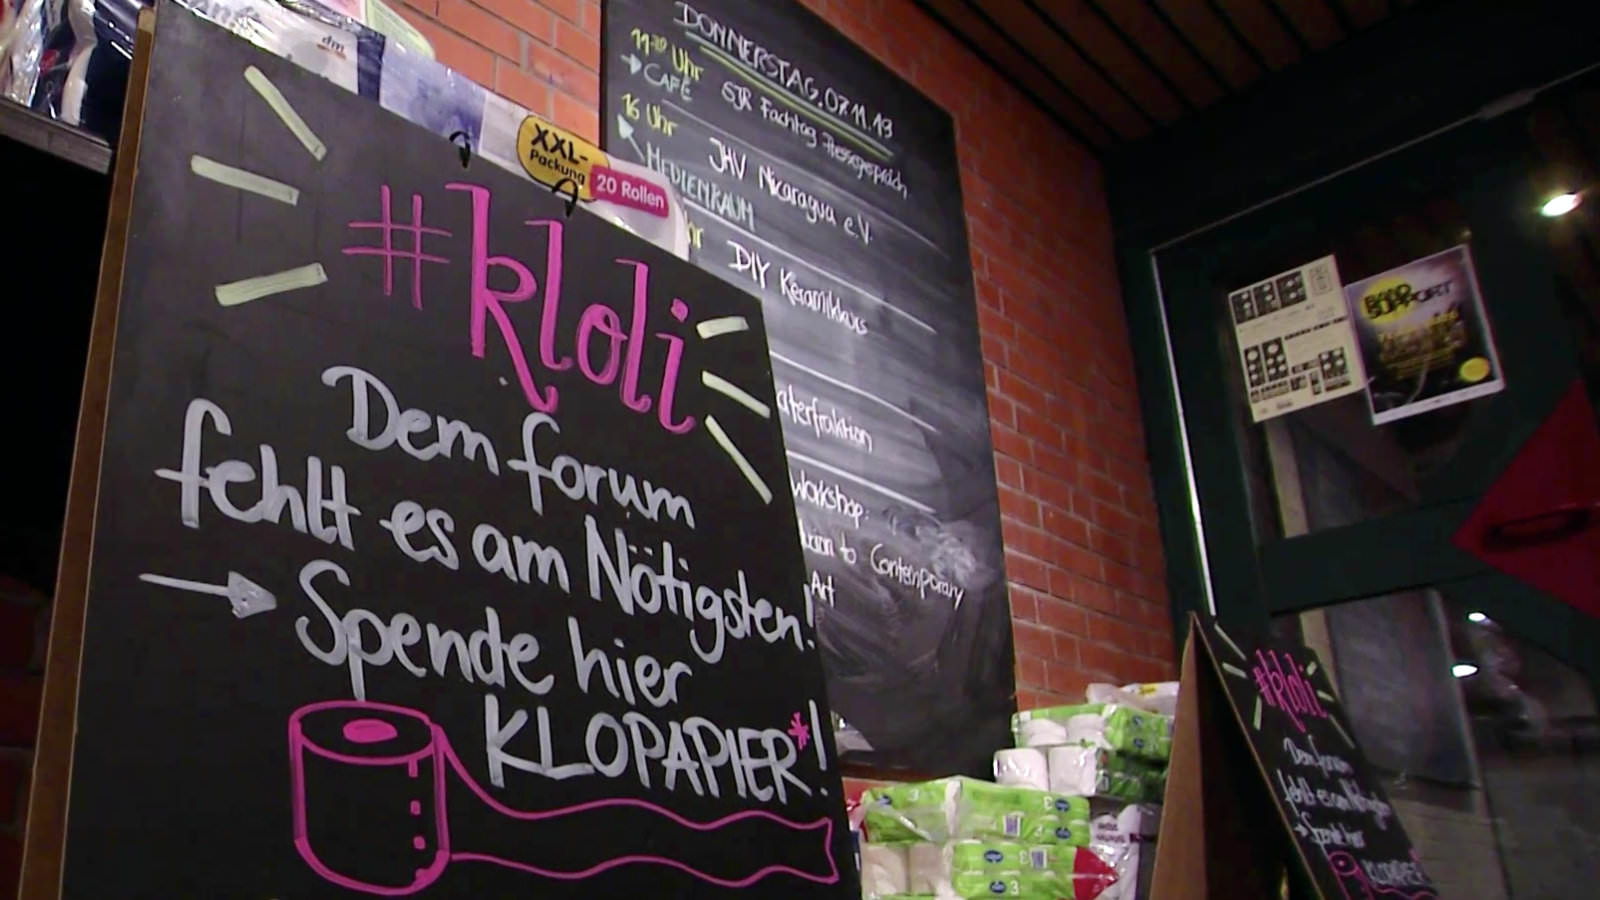 #kloli
Dem forum
fehlt es am Nötigsten!
→ Spende hier
KLOPAPIER*!
dm
XXL-
Packung
20 Rollen
DONNERSTAG, 07.11.13
11:30 Uhr SJR Fachtag Pressegespräch
→ CAFÉ
16 Uhr JHV Nicaragua e.V.
MEDIENRAUM
hr DIY Keramikkurs
aterfraktion
Workshop:
to Contemporary
Art
BAND
SUPPORT
#kloli
Dem forum
fehlt es am Nötigsten
→ Spende hier
KLOPAPIER